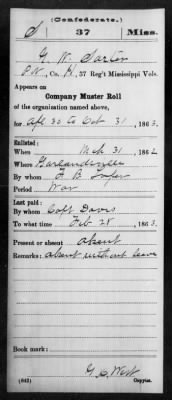 (Confederate.)
S 37 Miss.
G. W. Sarter
Pvt, Co. H, 37 Reg't Mississippi Vols.
Appears on
Company Muster Roll
of the organization named above,
for Apl 30 to Oct 31, 1863.
Enlisted:
When Mch 31, 1862
Where
By whom J B
Period War
Last paid:
By whom Capt Davis
To what time Feb 28, 1863.
Present or absent absent
Remarks: absent without leave
Book mark:
G. C. West
(642) Copyist.